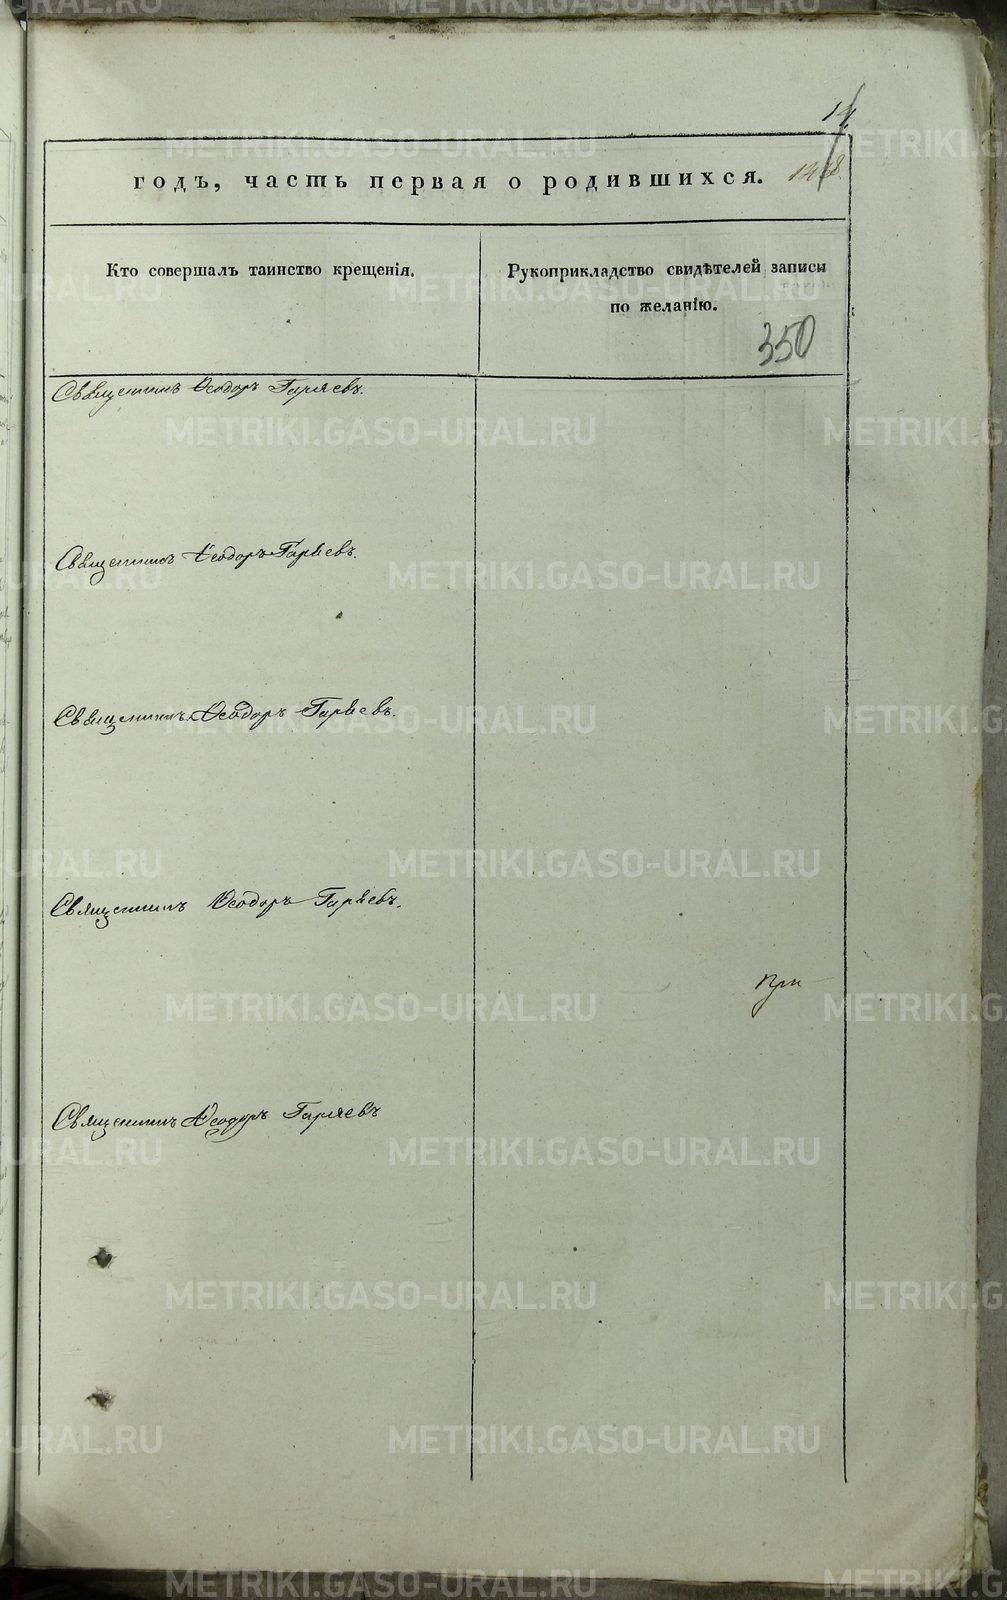 14
годъ, часть первая о родившихся.
Кто совершалъ таинство крещенія.
Рукоприкладство свидѣтелей записи
по желанію.
350
Священникъ Ѳеодоръ Гаряевъ.
Священникъ Ѳеодоръ Гаряевъ.
Священникъ Ѳеодоръ Гаряевъ.
Священникъ Ѳеодоръ Гаряевъ.
При
Священникъ Ѳеодоръ Гаряевъ
METRIKI.GASO-URAL.RU